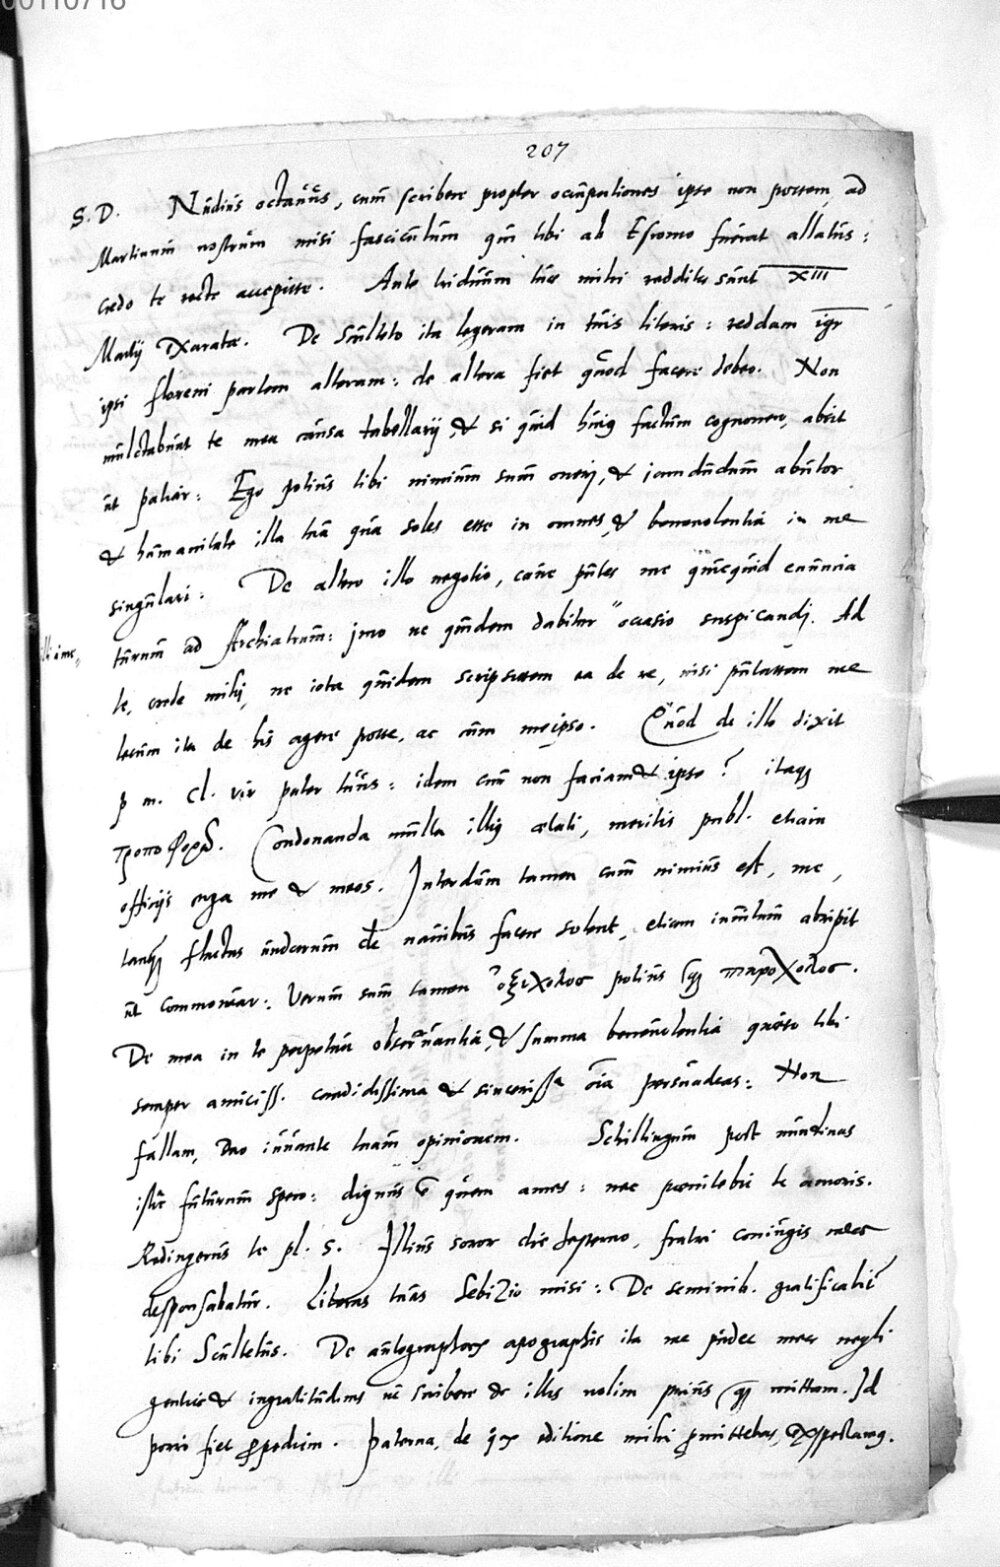 00110716
207
S. D. Nudius octavus, cum scribere propter occupationes ipse non possem, ad
Martianum nostrum misi fasciculum qui tibi ab Esromo fuerat allatus:
credo te recte accepisse. Ante triduum tuae mihi redditae sunt XIII
Maij Exaratae. De Sculteto ita legeram in tuis literis: reddam igr
ipsi floreni partem alteram: de altera fiet quod facere debeo. Non
mulctabunt te mea causa tabellarij, & si quid huiq factum cognovero, abest
ut patiar: Ego potius tibi nimium sum oneri, & iamdudum abutor
& humanitate illa tua qua soles esse in omnes, & benevolentia in me
singulari: De altero illo negotio, cave putes me quicquid enuncia
turum ad Archiatrum: imo ne quidem dabitur " occasio suspicandi. Ad
te, crede mihi, ne iota quidem scripsissem ea de re, nisi putassem me
tecum ita de his agere posse, ac cum meipso. Quod de illo dixit
p m. Cl. vir pater tuus: idem cur non faciam & ipse? itaq
τροποφορῶ. Condonanda multa illij aetati, meritis publ. etiam
officijs erga me & meos. Interdum tamen cum nimius est, me,
tanq fluctus undarum de navibus facere solent, etiam invitum abripit
ut commovear: Verum sum tamen ὀξύχολος potius q πικρόχολος.
De mea in te perpetua observantia, & summa benevolentia quaeso tibi
semper amiciss. candidissima & sinceriss oia persuadeas: Non
fallam, Deo iuvante tuam opinionem. Schillingum post nundinas
istic futurum spero: dignus e quem ames: nec poenitebit te amoris.
Redingerus te pl. S. Illius soror die hesterno, fratri coniugis meae
desponsabatur. Literas tuas Sebizio misi: De seminib. gratificabit
tibi Scultetus. De autographorum apographis ita me pudet meae negli
gentiae & ingratitudinis ut scribere de illis nolim prius q mittam. Id
porro fiet propediem. Paterna, de quorum editione mihi promittebas, Exspectamq.